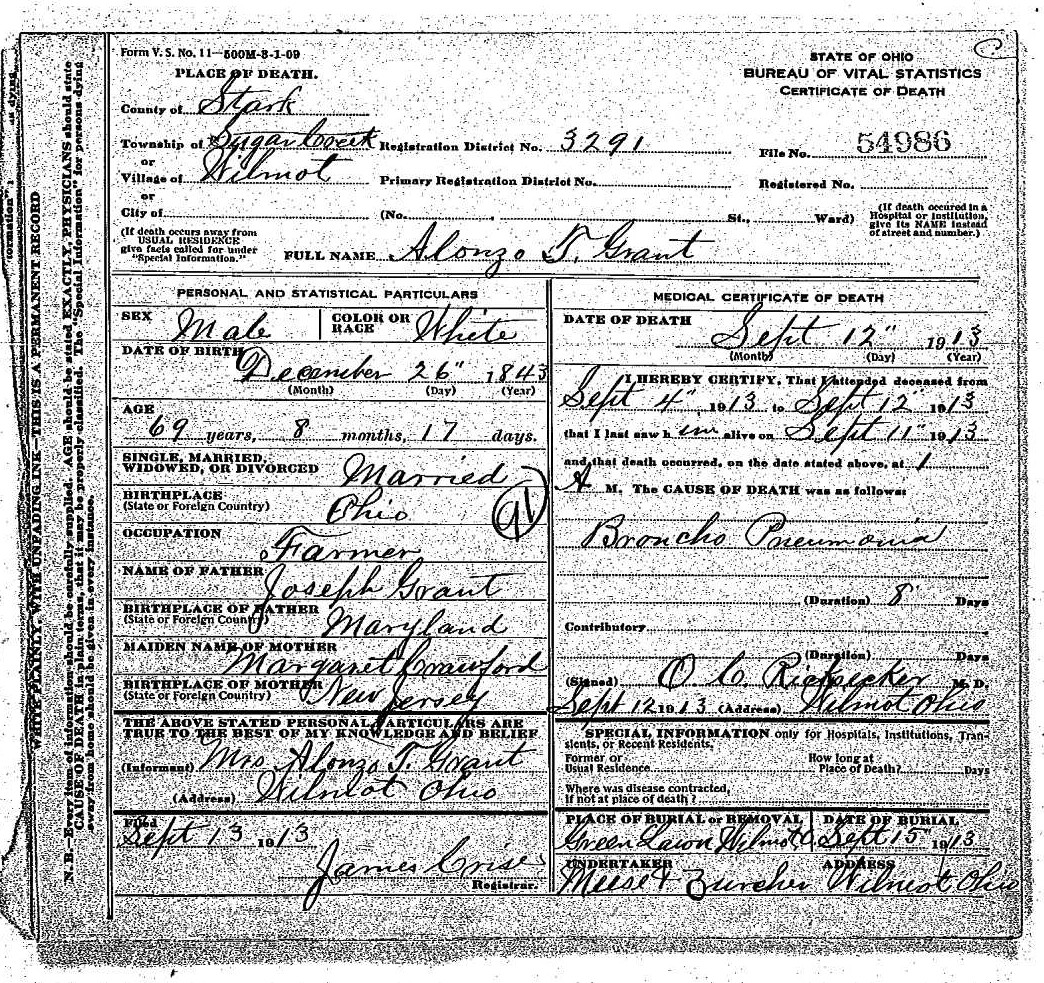 Form V. S. No. 11—500M-8-1-09
PLACE OF DEATH.
STATE OF OHIO
BUREAU OF VITAL STATISTICS
CERTIFICATE OF DEATH
County of Stark
Township of Sugar Creek Registration District No. 3291
File No. 54986
or
Village of Wilmot Primary Registration District No.
Registered No.
or
City of (No. , St., Ward)
(If death occured in a Hospital or institution, give its NAME instead of street and number.)
(If death occurs away from USUAL RESIDENCE give facts called for under "Special Information.")
FULL NAME Alonzo T. Grant
PERSONAL AND STATISTICAL PARTICULARS
SEX Male COLOR OR RACE White
DATE OF BIRTH
December 26" 1843
(Month) (Day) (Year)
AGE
69 years, 8 months, 17 days.
SINGLE, MARRIED,
WIDOWED, OR DIVORCED Married
BIRTHPLACE
(State or Foreign Country) Ohio
91
OCCUPATION
Farmer
NAME OF FATHER
Joseph Grant
BIRTHPLACE OF FATHER
(State or Foreign Country) Maryland
MAIDEN NAME OF MOTHER
Margaret Crawford
BIRTHPLACE OF MOTHER
(State or Foreign Country) New Jersey
THE ABOVE STATED PERSONAL PARTICULARS ARE
TRUE TO THE BEST OF MY KNOWLEDGE AND BELIEF
(Informant) Mrs Alonzo T. Grant
(Address) Wilmot Ohio
Filed
Sept 13 1913
James Crise
Registrar.
MEDICAL CERTIFICATE OF DEATH
DATE OF DEATH
Sept 12" 1913
(Month) (Day) (Year)
I HEREBY CERTIFY, That I attended deceased from
Sept 4", 1913 to Sept 12" 1913
that I last saw him alive on Sept 11" 1913
and that death occurred, on the date stated above, at 1
A M. The CAUSE OF DEATH was as follows:
Broncho Pneumonia
(Duration) 8 Days
Contributory
(Duration) Days
(Signed) O. C. M. D.
Sept 12 1913 (Address) Wilmot Ohio
SPECIAL INFORMATION only for Hospitals, Institutions, Tran-
sients, or Recent Residents.
Former or
Usual Residence
How long at
Place of Death? Days
Where was disease contracted,
if not at place of death?
PLACE OF BURIAL or REMOVAL DATE OF BURIAL
Green Lawn Wilmot O. Sept 15 1913
UNDERTAKER ADDRESS
Meese & Zurcher Wilmot Ohio
WRITE PLAINLY, WITH UNFADING INK—THIS IS A PERMANENT RECORD
N. B.—Every item of information should be carefully supplied. AGE should be stated EXACTLY, PHYSICIANS should state
CAUSE OF DEATH in plain terms, that it may be properly classified. The "Special Information" for persons dying
away from home should be given in every instance.